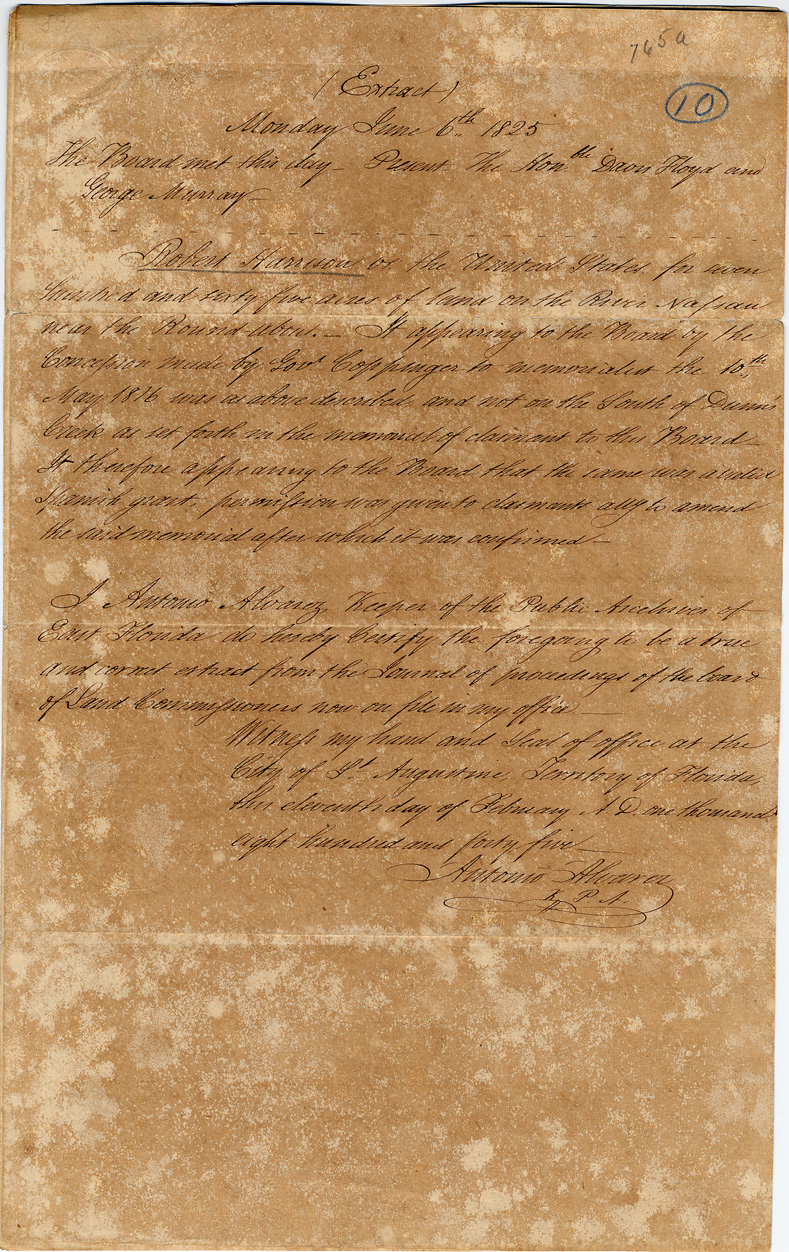 765a
10
(Extract)
Monday June 6th 1825
The Board met this day — Present The Honble Davis Floyd and
George Murray —
Robert Harrison vs the United States for seven
hundred and sixty five acres of land on the River Nassau
near the Round-about. — It appearing to the Board by the
Concession made by Govr Coppinger to memorialist the 10th
May 1816 was as above described and not on the South of Dunn's
Creek as set forth in the memorial of claimant to this Board —
It therefore appearing to the Board that the same was a valid
Spanish grant, permission was given to claimants atty to amend
the said memorial after which it was confirmed —
I Antonio Alvarez, Keeper of the Public Archives of
East Florida do hereby Certify the foregoing to be a true
and correct extract from the Journal of proceedings of the board
of Land Commissioners now on file in my office —
Witness my hand and Seal of office at the
City of St. Augustine, Territory of Florida,
this eleventh day of February A. D. one thousand
eight hundred and forty five —
Antonio Alvarez
K. P. A.